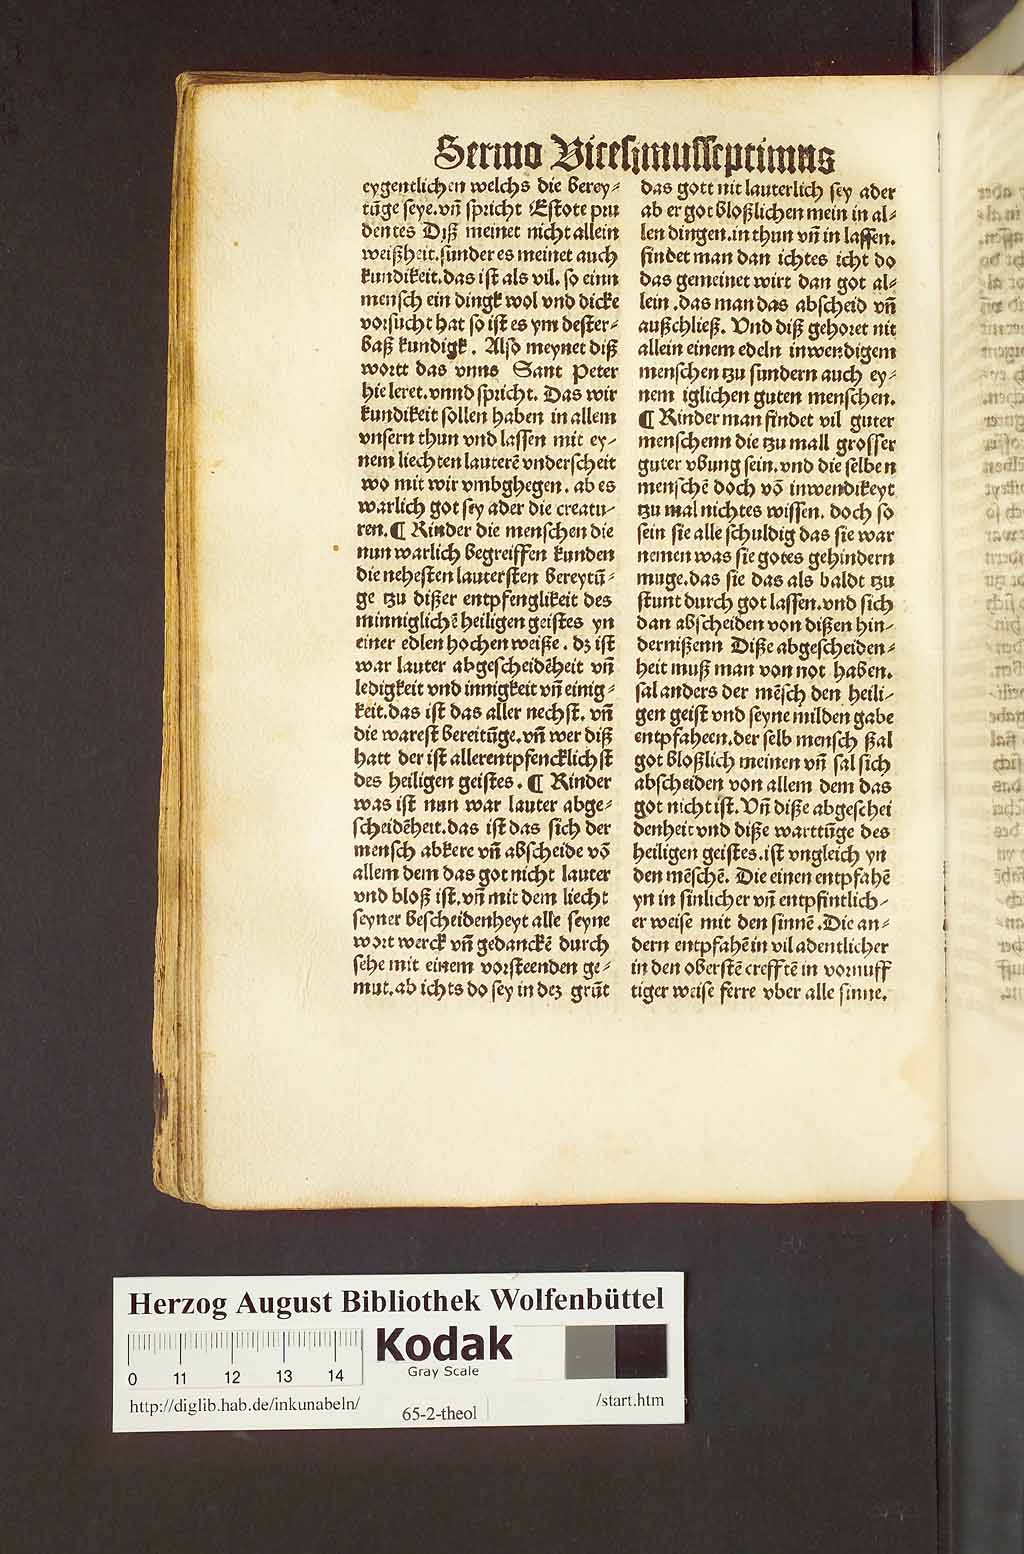 Sermo Vicesimusseptimus
eygentlichen welchs die berey⸗
tūge seye. vn̄ spricht Estote pru
dentes Diß meinet nicht allein
weißheit. sunder es meinet auch
kundikeit. das ist als vil. so einn
mensch ein dingk wol vnd dicke
vorsucht hat so ist es ym dester⸗
baß kundigk. Also meynet diß
wortt das vnns Sant Peter
hie leret. vnnd spricht. Das wir
kundikeit sollen haben in allem
vnsern thun vnd lassen mit ey⸗
nem liechten lauterē vnderscheit
wo mit wir vmbghegen. ab es
warlich got sey ader die creatu⸗
ren. ¶ Kinder die menschen die
nun warlich begreiffen kunden
die nehesten lautersten bereytū⸗
ge tzu dißer entpfenglikeit des
minniglichē heiligen geistes yn
einer edlen hochen weiße. dz ist
war lauter abgescheidēheit vn̄
ledigkeit vnd innigkeit vn̄ einig⸗
keit. das ist das aller nechst. vn̄
die warest bereitūge. vn̄ wer diß
hatt der ist allerentpfencklichst
des heiligen geistes. ¶ Kinder
was ist nun war lauter abge⸗
scheidēheit. das ist das sich der
mensch abkere vn̄ abscheide vō
allem dem das got nicht lauter
vnd bloß ist. vn̄ mit dem liecht
seyner bescheidenheyt alle seyne
wort werck vn̄ gedanckē durch
sehe mit einem vorsteenden ge⸗
mut. ab ichts do sey in dez grūt
das gott nit lauterlich sey ader
ab er got bloßlichen mein in al⸗
len dingen. in thun vn̄ in lassen.
findet man dan ichtes icht do
das gemeinet wirt dan got al⸗
lein. das man das abscheid vn̄
außchließ. Vnd diß gehoret nit
allein einem edeln inwendigem
menschen tzu sundern auch ey⸗
nem iglichen guten menschen.
¶ Kinder man findet vil guter
menschenn die tzu mall grosser
guter vbung sein. vnd die selben
menschē doch vō inwendikeyt
tzu mal nichtes wissen. doch so
sein sie alle schuldig das sie war
nemen was sie gotes gehindern
muge. das sie das als baldt tzu
stunt durch got lassen. vnd sich
dan abscheiden von dißen hin⸗
dernißenn Diße abgescheiden⸗
heit muß man von not haben.
sal anders der mēsch den heili⸗
gen geist vnd seyne milden gabe
entpfaheen. der selb mensch ßal
got bloßlich meinen vn̄ sal sich
abscheiden von allem dem das
got nicht ist. Vn̄ diße abgeschei
denheit vnd diße warttūge des
heiligen geistes. ist vngleich yn
den mēschē. Die einen entpfahē
yn in sinlicher vn̄ entpfintlich⸗
er weise mit den sinnē. Die an⸗
dern entpfahē in vil adentlicher
in den oberstē crefftē in vornuff
tiger weise ferre vber alle sinne.
Herzog August Bibliothek Wolfenbüttel
Kodak
Gray Scale
0 11 12 13 14
http://diglib.hab.de/inkunabeln/
65-2-theol
/start.htm